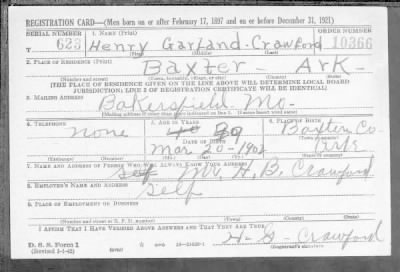 REGISTRATION CARD—(Men born on or after February 17, 1897 and on or before December 31, 1921)
SERIAL NUMBER 1. NAME (Print) ORDER NUMBER
T 623 Henry Garland Crawford 10366
(First) (Middle) (Last)
2. PLACE OF RESIDENCE (Print)
Baxter Ark
(Number and street) (Town, township, village, or city) (County) (State)
[THE PLACE OF RESIDENCE GIVEN ON THE LINE ABOVE WILL DETERMINE LOCAL BOARD
JURISDICTION; LINE 2 OF REGISTRATION CERTIFICATE WILL BE IDENTICAL]
3. MAILING ADDRESS
Bakersfield Mo.
[Mailing address if other than place indicated on line 2. If same insert word same]
4. TELEPHONE 5. AGE IN YEARS 6. PLACE OF BIRTH
none 39 Baxter Co
DATE OF BIRTH (Town or county)
Mar 20-1902 Ark
(Exchange) (Number) (Mo.) (Day) (Yr.) (State or country)
7. NAME AND ADDRESS OF PERSON WHO WILL ALWAYS KNOW YOUR ADDRESS
self Mr. H. B. Crawford
8. EMPLOYER'S NAME AND ADDRESS
self
9. PLACE OF EMPLOYMENT OR BUSINESS
(Number and street or R. F. D. number) (Town) (County) (State)
I AFFIRM THAT I HAVE VERIFIED ABOVE ANSWERS AND THAT THEY ARE TRUE.
D. S. S. Form 1 H-G-Crawford
(Revised 1-1-42) (Registrant's signature)